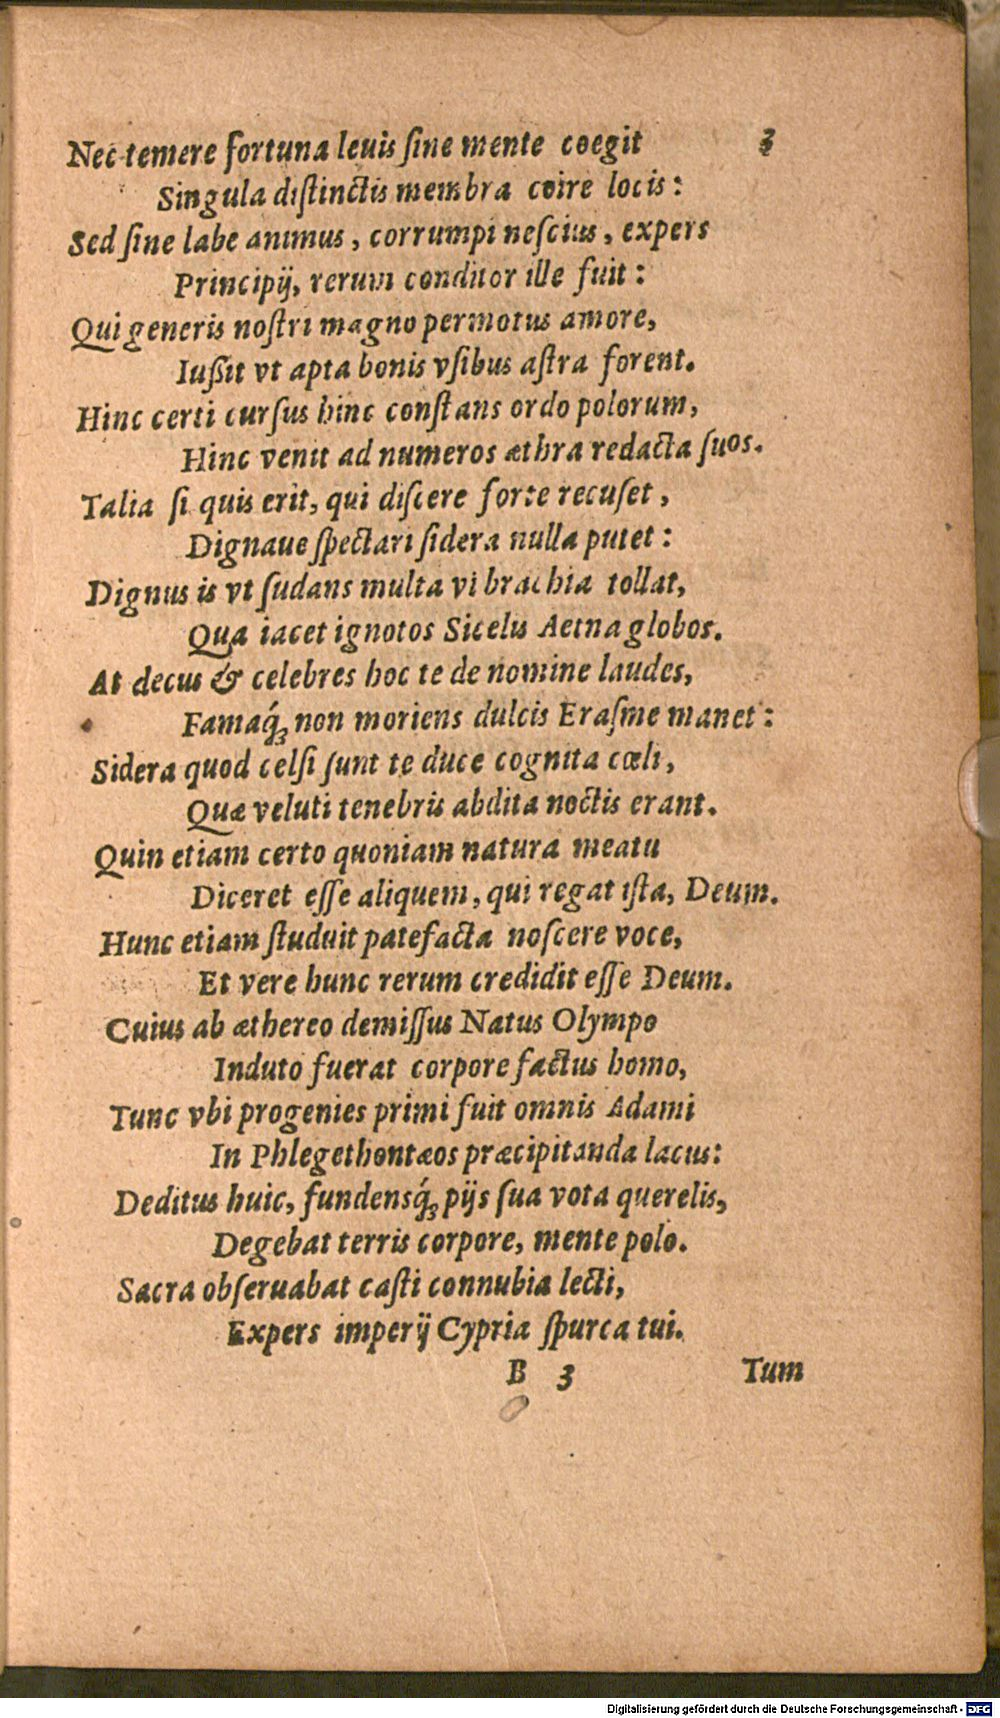 Nec temere fortuna leuis ſine mente coegit 3
Singula diſtinctis membra coire locis:
Sed ſine labe animus, corrumpi neſcius, expers
Principij, rerum conditor ille fuit:
Qui generis noſtri magno permotus amore,
Iußit vt apta bonis vſibus aſtra forent.
Hinc certi curſus hinc conſtans ordo polorum,
Hinc venit ad numeros æthra redacta ſuos.
Talia ſi quis erit, qui diſcere forte recuſet,
Dignaue ſpectari ſidera nulla putet:
Dignus is vt ſudans multa vi brachia tollat,
Qua iacet ignotos Sicelis Aetna globos.
At decus & celebres hoc te de nomine laudes,
Famaq́ꝫ non moriens dulcis Eraſme manet:
Sidera quod celſi ſunt te duce cognita cœli,
Quæ veluti tenebris abdita noctis erant.
Quin etiam certo quoniam natura meatu
Diceret eſſe aliquem, qui regat iſta, Deum.
Hunc etiam ſtuduit patefacta noſcere voce,
Et vere hunc rerum credidit eſſe Deum.
Cuius ab æthereo demiſſus Natus Olympo
Induto fuerat corpore factus homo,
Tunc vbi progenies primi fuit omnis Adami
In Phlegethontæos præcipitanda lacus:
Deditus huic, fundensq́ꝫ pijs ſua vota querelis,
Degebat terris corpore, mente polo.
Sacra obſeruabat caſti connubia lecti,
Expers imperij Cypria ſpurca tui.
B 3 Tum
Digitalisierung gefördert durch die Deutsche Forschungsgemeinschaft - DFG